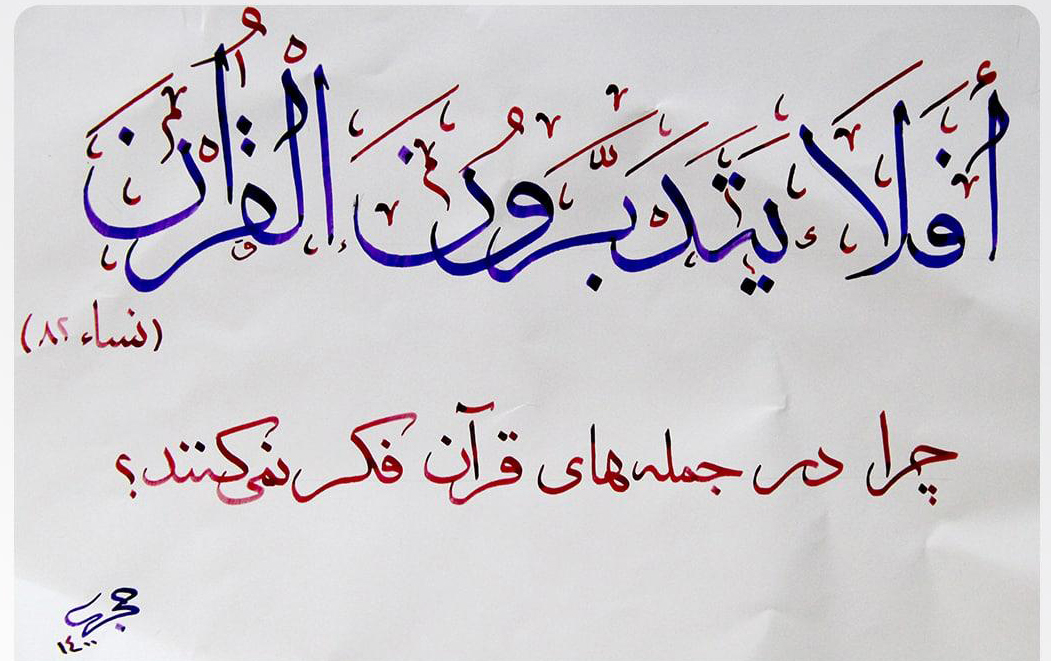 أَفَلَا يَتَدَبَّرُونَ الْقُرْآنَ
(نساء ۸۲)
چرا در جمله های قرآن فکر نمی‌کنند؟
۱۴۰۰